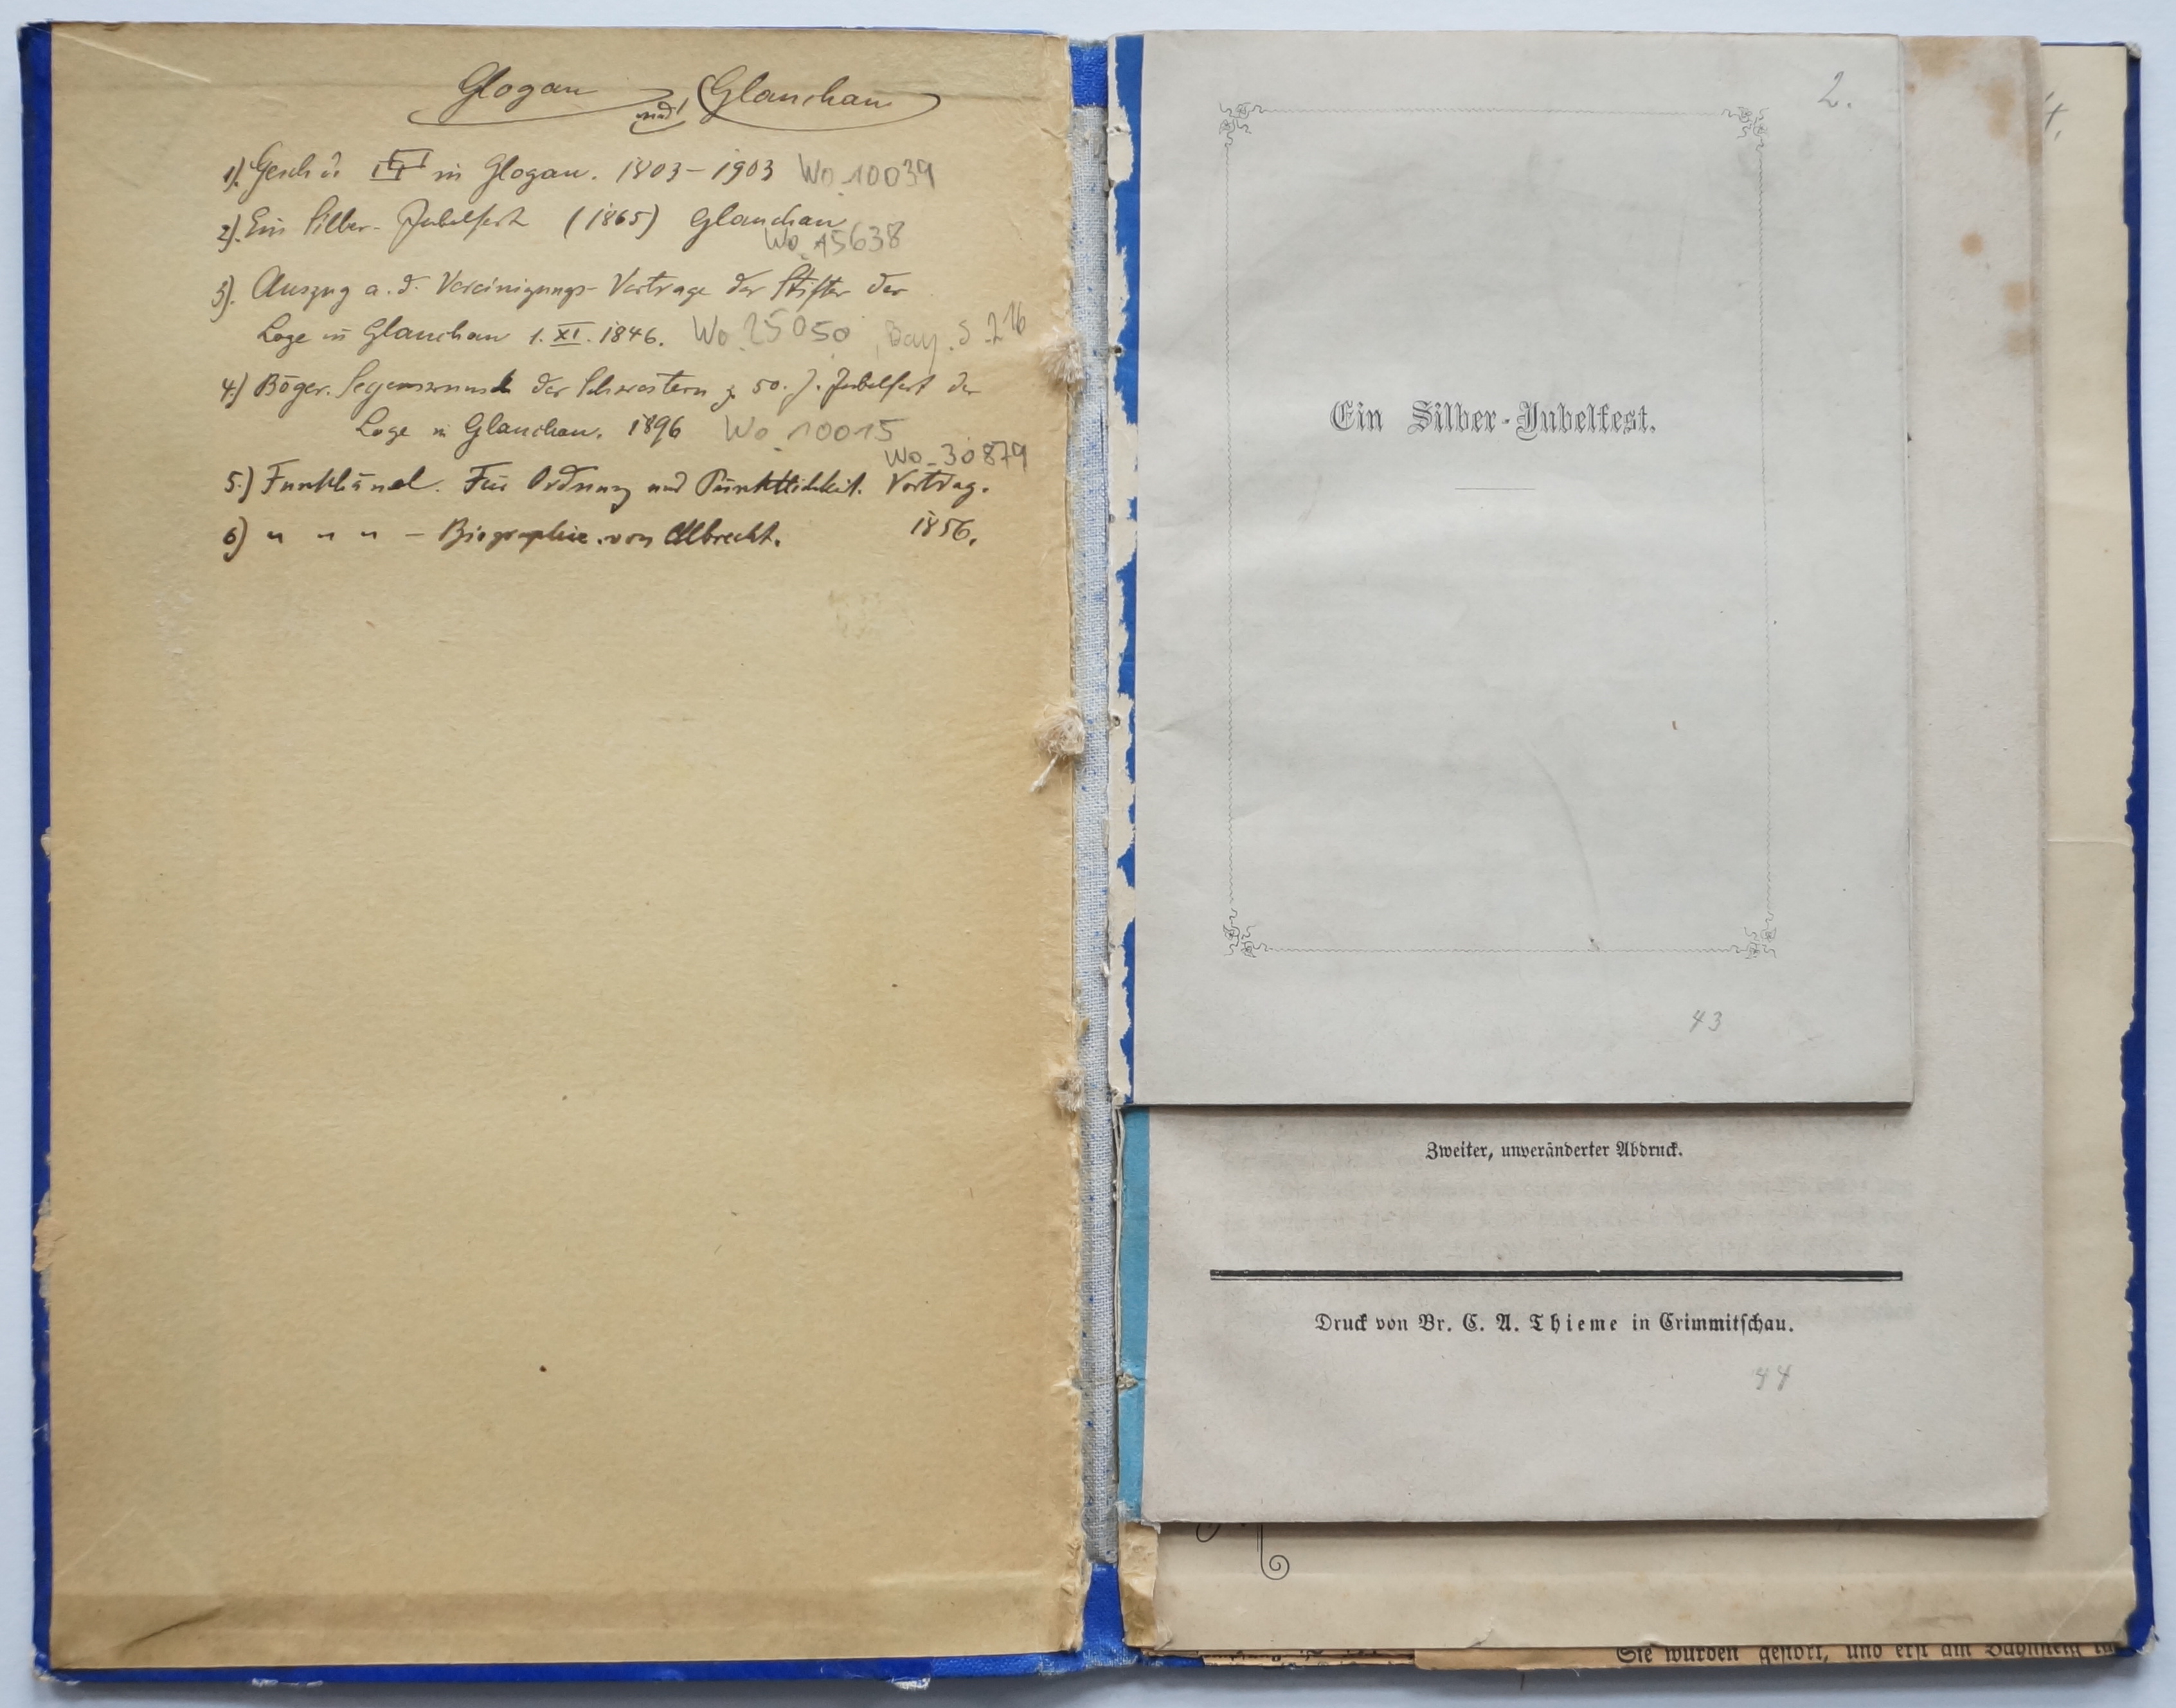 Glogau und Glauchau
1). Gesch. d. in Glogau. 1803-1903 Wo 10039
2). Ein Silber-Jubelfest (1865) Glauchau
Wo 15638
3). Auszug a. d. Vereinigungs-Vertrage der Stifter der
Loge in Glauchau 1. XI. 1846. Wo 25050, Bay. S. 216
4.) Böger. Segenswunsch der Schwestern z. 50. J. Jubelfest der
Loge in Glauchau. 1896 Wo 10015
Wo 30879
5.) Funkhänel. Für Ordnung und Pünktlichkeit. Vortrag.
1856.
6) " " " - Biographie von Albrecht.
2.
Ein Silber-Jubelfest.
43
Zweiter, unveränderter Abdruck.
Druck von Br. C. A. Thieme in Crimmitschau.
44
4.
Sie wurden gestört, und erst am